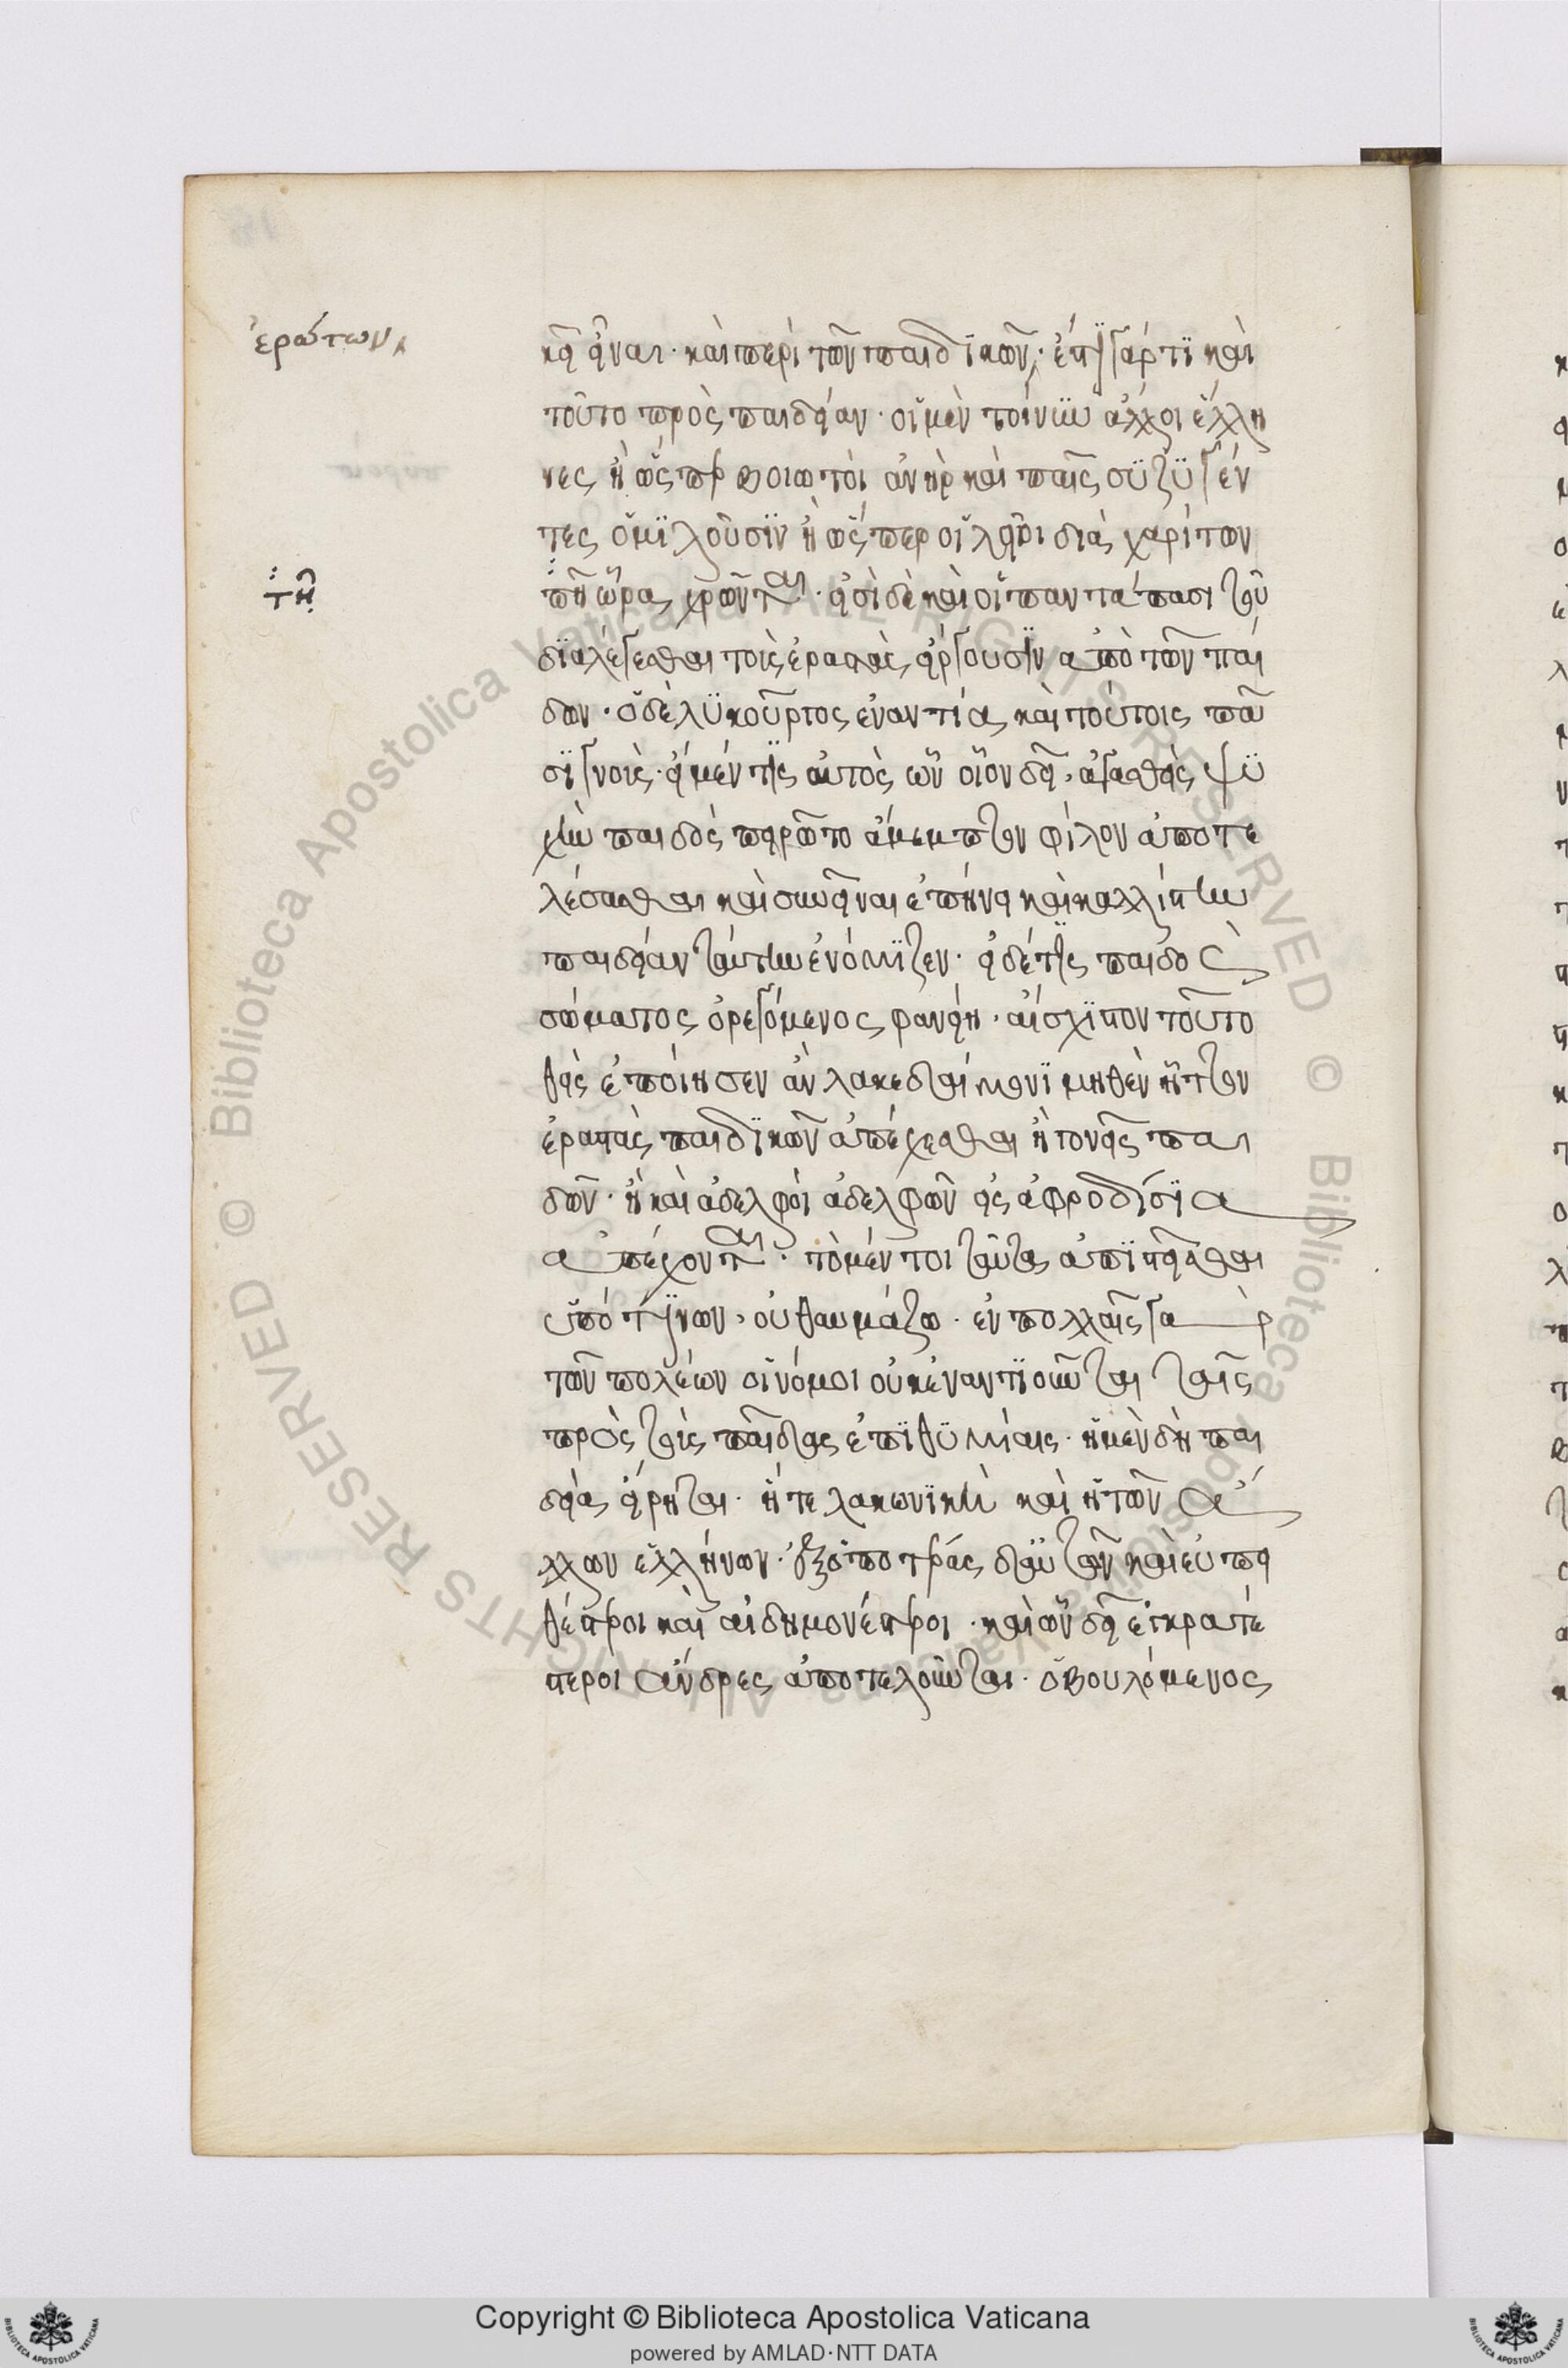 ἐρώτων
κεῖ εἶναι· καὶ περὶ τῶν παιδϊκῶν· ἔστϊ γάρ τϊ καὶ
τοῦτο πρὸς παιδείαν· οἱ μὲν τοίνϋν ἄλλοι ἕλλη
νες ἢ ὥσπερ βοιωτοὶ ἀνὴρ καὶ παῖς σϋζϋγέν
τες ὁμϊλοῦσϊν ἢ ὥσπερ οἱ ἠλεῖοι διὰ χαρίτων
τῆ
τῆ ὥρας χρῶνται· εἰσὶ δὲ καὶ οἳ παντάπασι τοῦ
δϊαλέγεσθαι τοὺς ἐραστὰς εἴργουσϊν ἀπὸ τῶν παί
δων· ὁ δὲ λϋκοῦργος ἐναντία καὶ τούτοις πᾶ
σϊ γνοὺς· εἰ μέν τϊς αὐτὸς ὢν οἷον δεῖ, ἀγασθεὶς ψϋ
χὴν παιδὸς πειρῶτο ἄμεμπτον φίλον ἀποτε
λέσασθαι καὶ συνεῖναι ἐπήνει καὶ καλλίστην
παιδείαν ταύτην ἐνόμϊζεν· εἰ δέ τϊς παιδὸς
σώματος ὀρεγόμενος φανείη· αἴσχϊστον τοῦτο
θεὶς ἐποίησεν ἐν λακεδαίμονϊ μηθὲν ἧττον
ἐραστὰς παιδϊκῶν ἀπέχεσθαι ἢ γονεῖς παί
δων· ἢ καὶ ἀδελφοὶ ἀδελφῶν εἰς ἀφροδίσϊα
ἀπέχονται· τὸ μέντοι ταῦτα ἀπϊστεῖσθαι
ὑπό τϊνων, οὐ θαυμάζω· ἐν πολλαῖς γὰρ
τῶν πόλεων οἱ νόμοι οὐκ ἐναντϊοῦνται ταῖς
πρὸς τοὺς παῖδας ἐπϊθϋμίαις· ἡ μὲν δὴ παι
δεία εἴρηται· ἥ τε λακωνϊκὴ καὶ ἡ τῶν ἄ
λλων ἑλλήνων· ἐξ ὁποτέρας δ' αὖ τῶν καὶ εὐπει
θέστεροι καὶ αἰδημονέστεροι· καὶ ὧν δεῖ ἐγκρατέ
στεροι ἄνδρες ἀποτελοῦνται· ὁ βουλόμενος
Copyright © Biblioteca Apostolica Vaticana
powered by AMLAD·NTT DATA